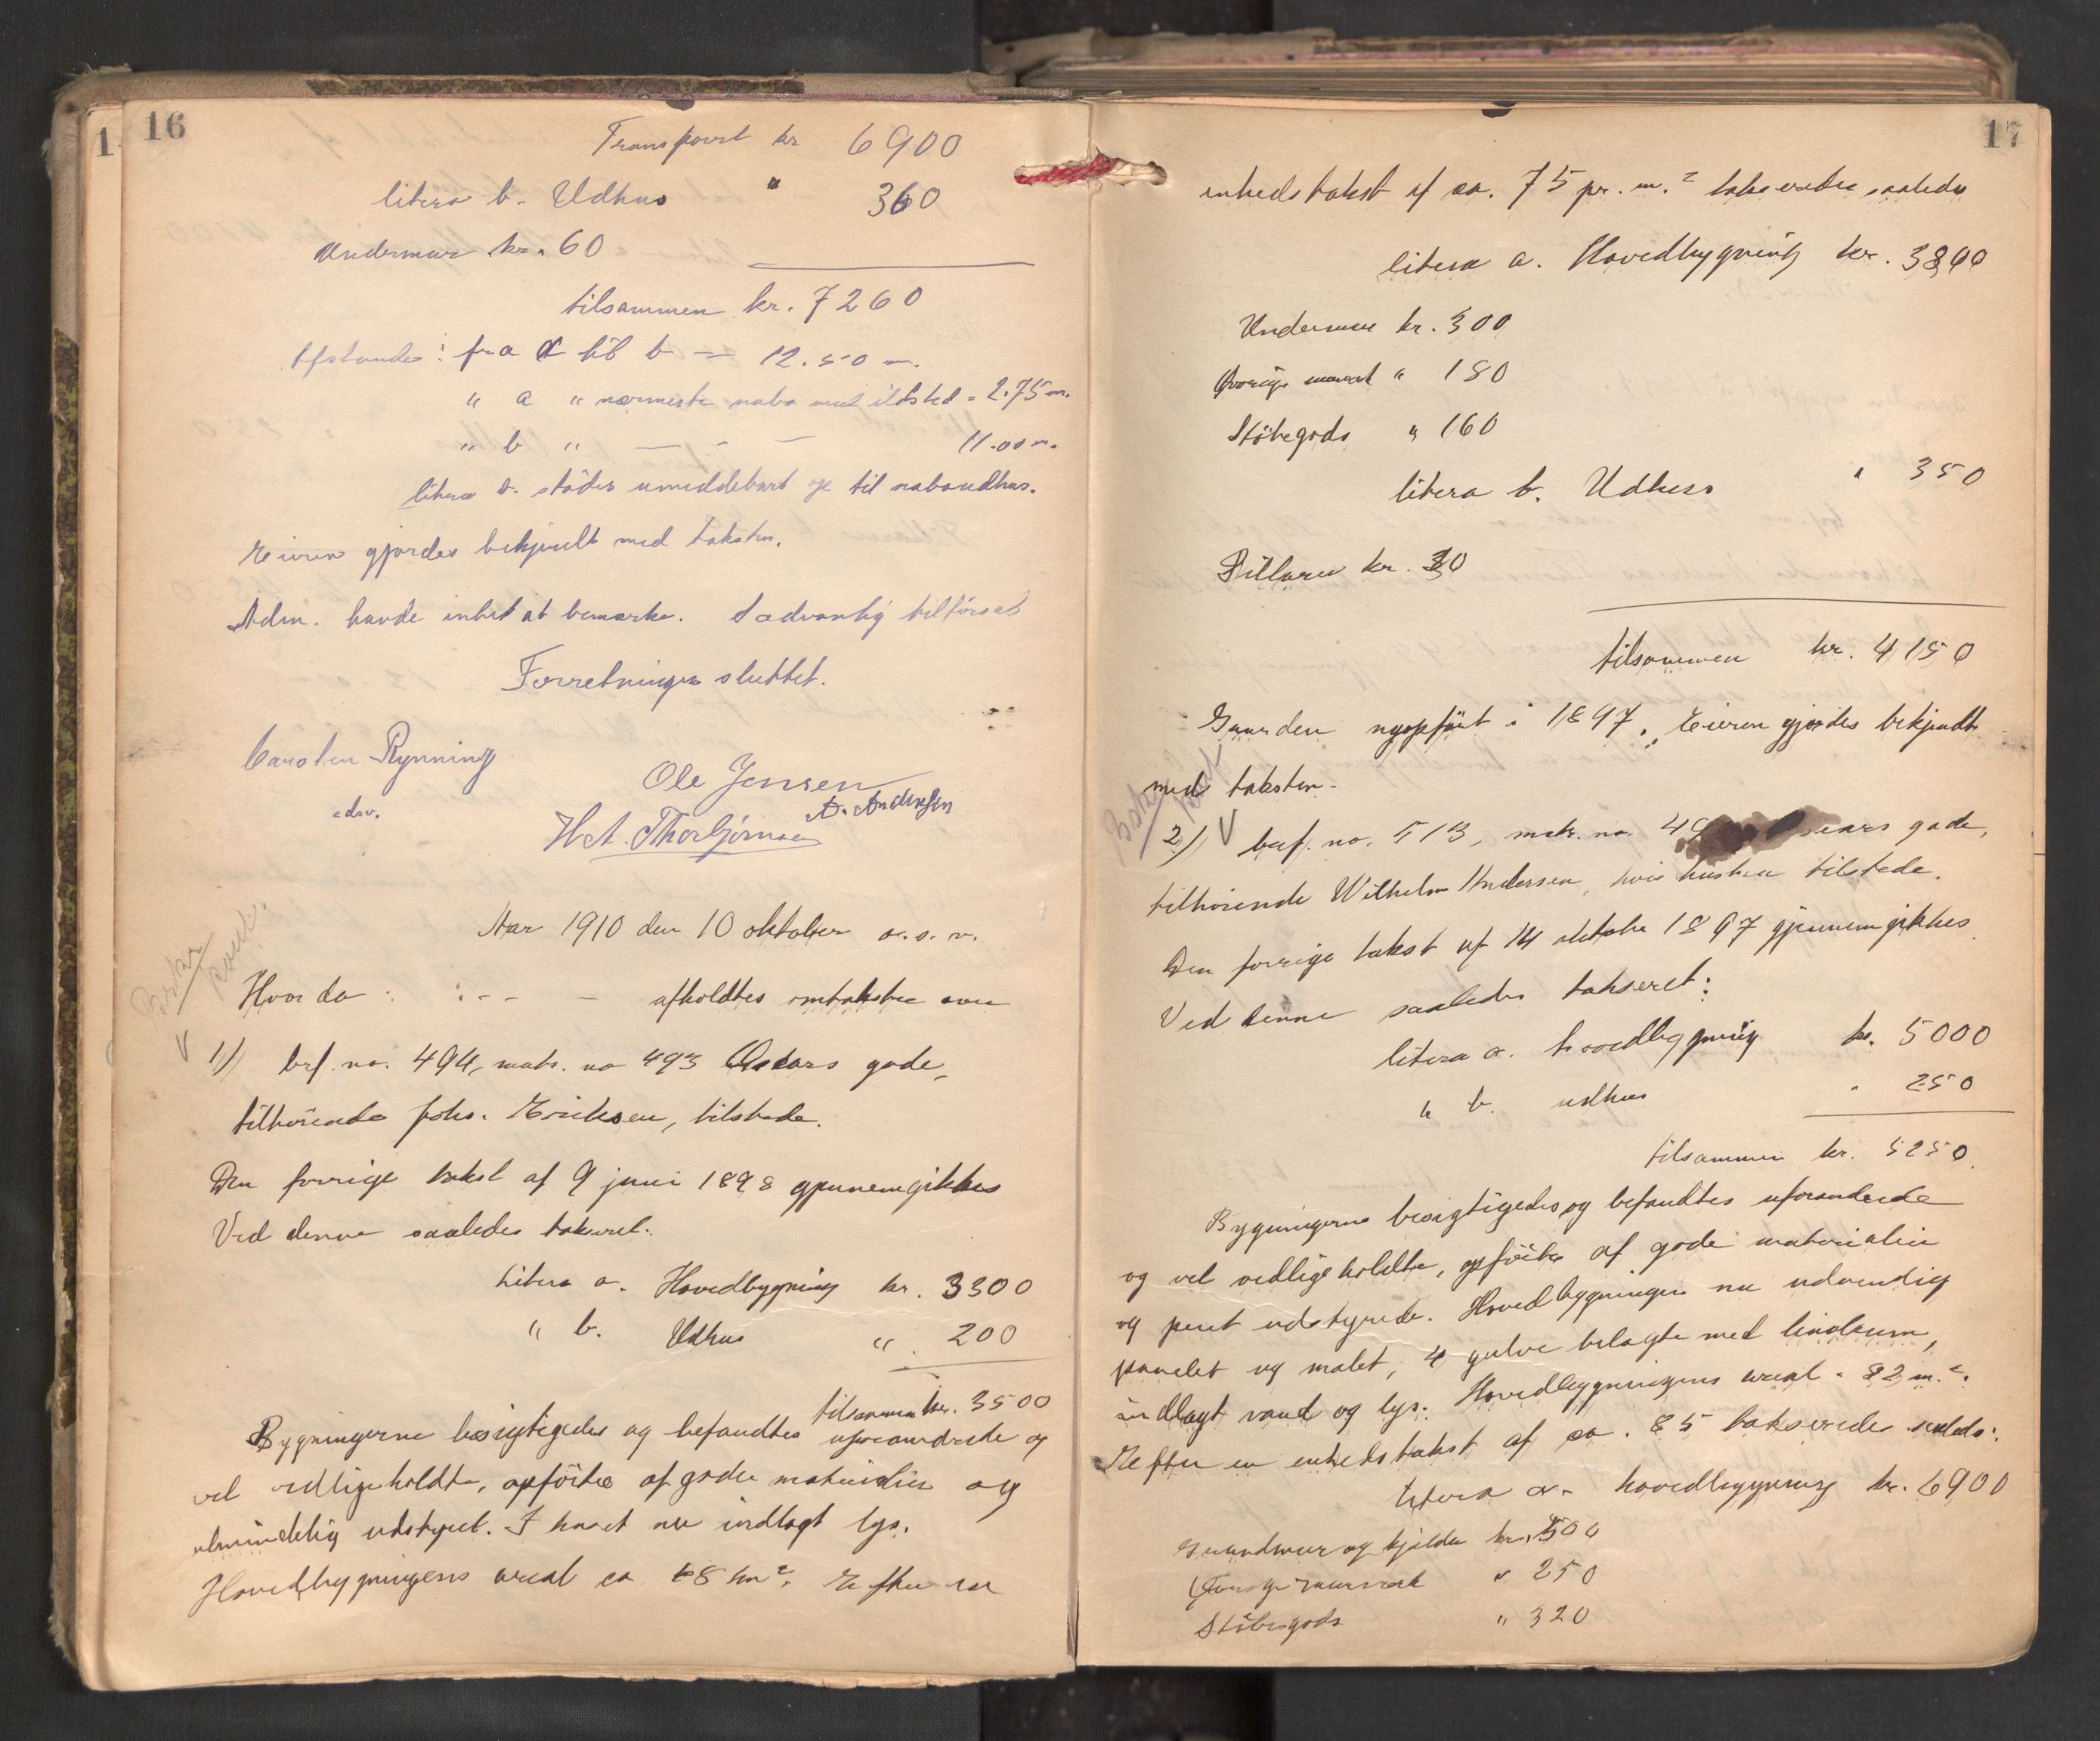 16
Transport kr 6900
litera b. Udhus " 360
Undermur kr. 60
tilsammen kr. 7260
Afstande: fra a til b = 12.50 m.
" a " nærmeste nabo med ildsted = 2.75 m.
" b " — - — 11.00 m.
litera b. støder umiddelbart op til nabaudhus.
Eieren gjordes bekjendt med taksten.
Adm. havde intet at bemærke. Sædvanlig tilførsel
Forretningen sluttet.
Carsten Rynning
adv.
Ole Jensen
A. Andersen
H. A. Thorbjørnsen
Aar 1910 den 10 oktober o.s.v.
Hvor da : : - - - afholdtes omtakster over
1) brf. no. 494, matr. no 493 Oscars gade,
tilhørende Johs. Eriksen, tilstede.
Den forrige takst af 9 juni 1898 gjennemgikkes
Ved denne saaledes takseret:
Litera a. Hovedbygning kr. 3300
" b. Udhus " 200
tilsammen kr. 3500
Bygningerne besigtigedes og befandtes uforandrede og
vel vedligeholdte, opførte af gode materialier og
almindelig udstyret. I huset nu indlagt lys.
Hovedbygningens areal ca 48 m². Efter en
17
enhedstakst af ca. 75 pr. m.² takseredes saaledes
litera a. Hovedbygning kr. 3800
Undermur kr. 300
Øvrige murverk " 180
Støbegods " 160
litera b. Udhus " 350
Pillarer kr. 30
tilsammen kr. 4150
Gaarden nyopført i 1897. Eieren gjordes bekjendt
med taksten.
2) brf. no. 513, matr. no. gade,
tilhørende Wilhelm Andersen, hvis hustru tilstede.
Den forrige takst af 14 oktober 1897 gjennemgikkes
Ved denne saaledes takseret:
litera a. hovedbygning kr. 5000
" b. udhus " 250
tilsammen kr. 5250
Bygningerne besigtigedes og befandtes uforandrede
og vel vedligeholdte, opførte af gode materialier
og pent udstyrede. Hovedbygningen nu udvendig
panelet og malet, 4 gulve belagte med linoleum,
indlagt vand og lys. Hovedbygningens areal = 82 m.².
Efter en enhedstakst af ca. 85 takseredes saaleds:
litera a. hovedbygning kr. 6900
Grundmur og kjelder kr. 500
Øvrige murverk " 250
Støbegods " 320